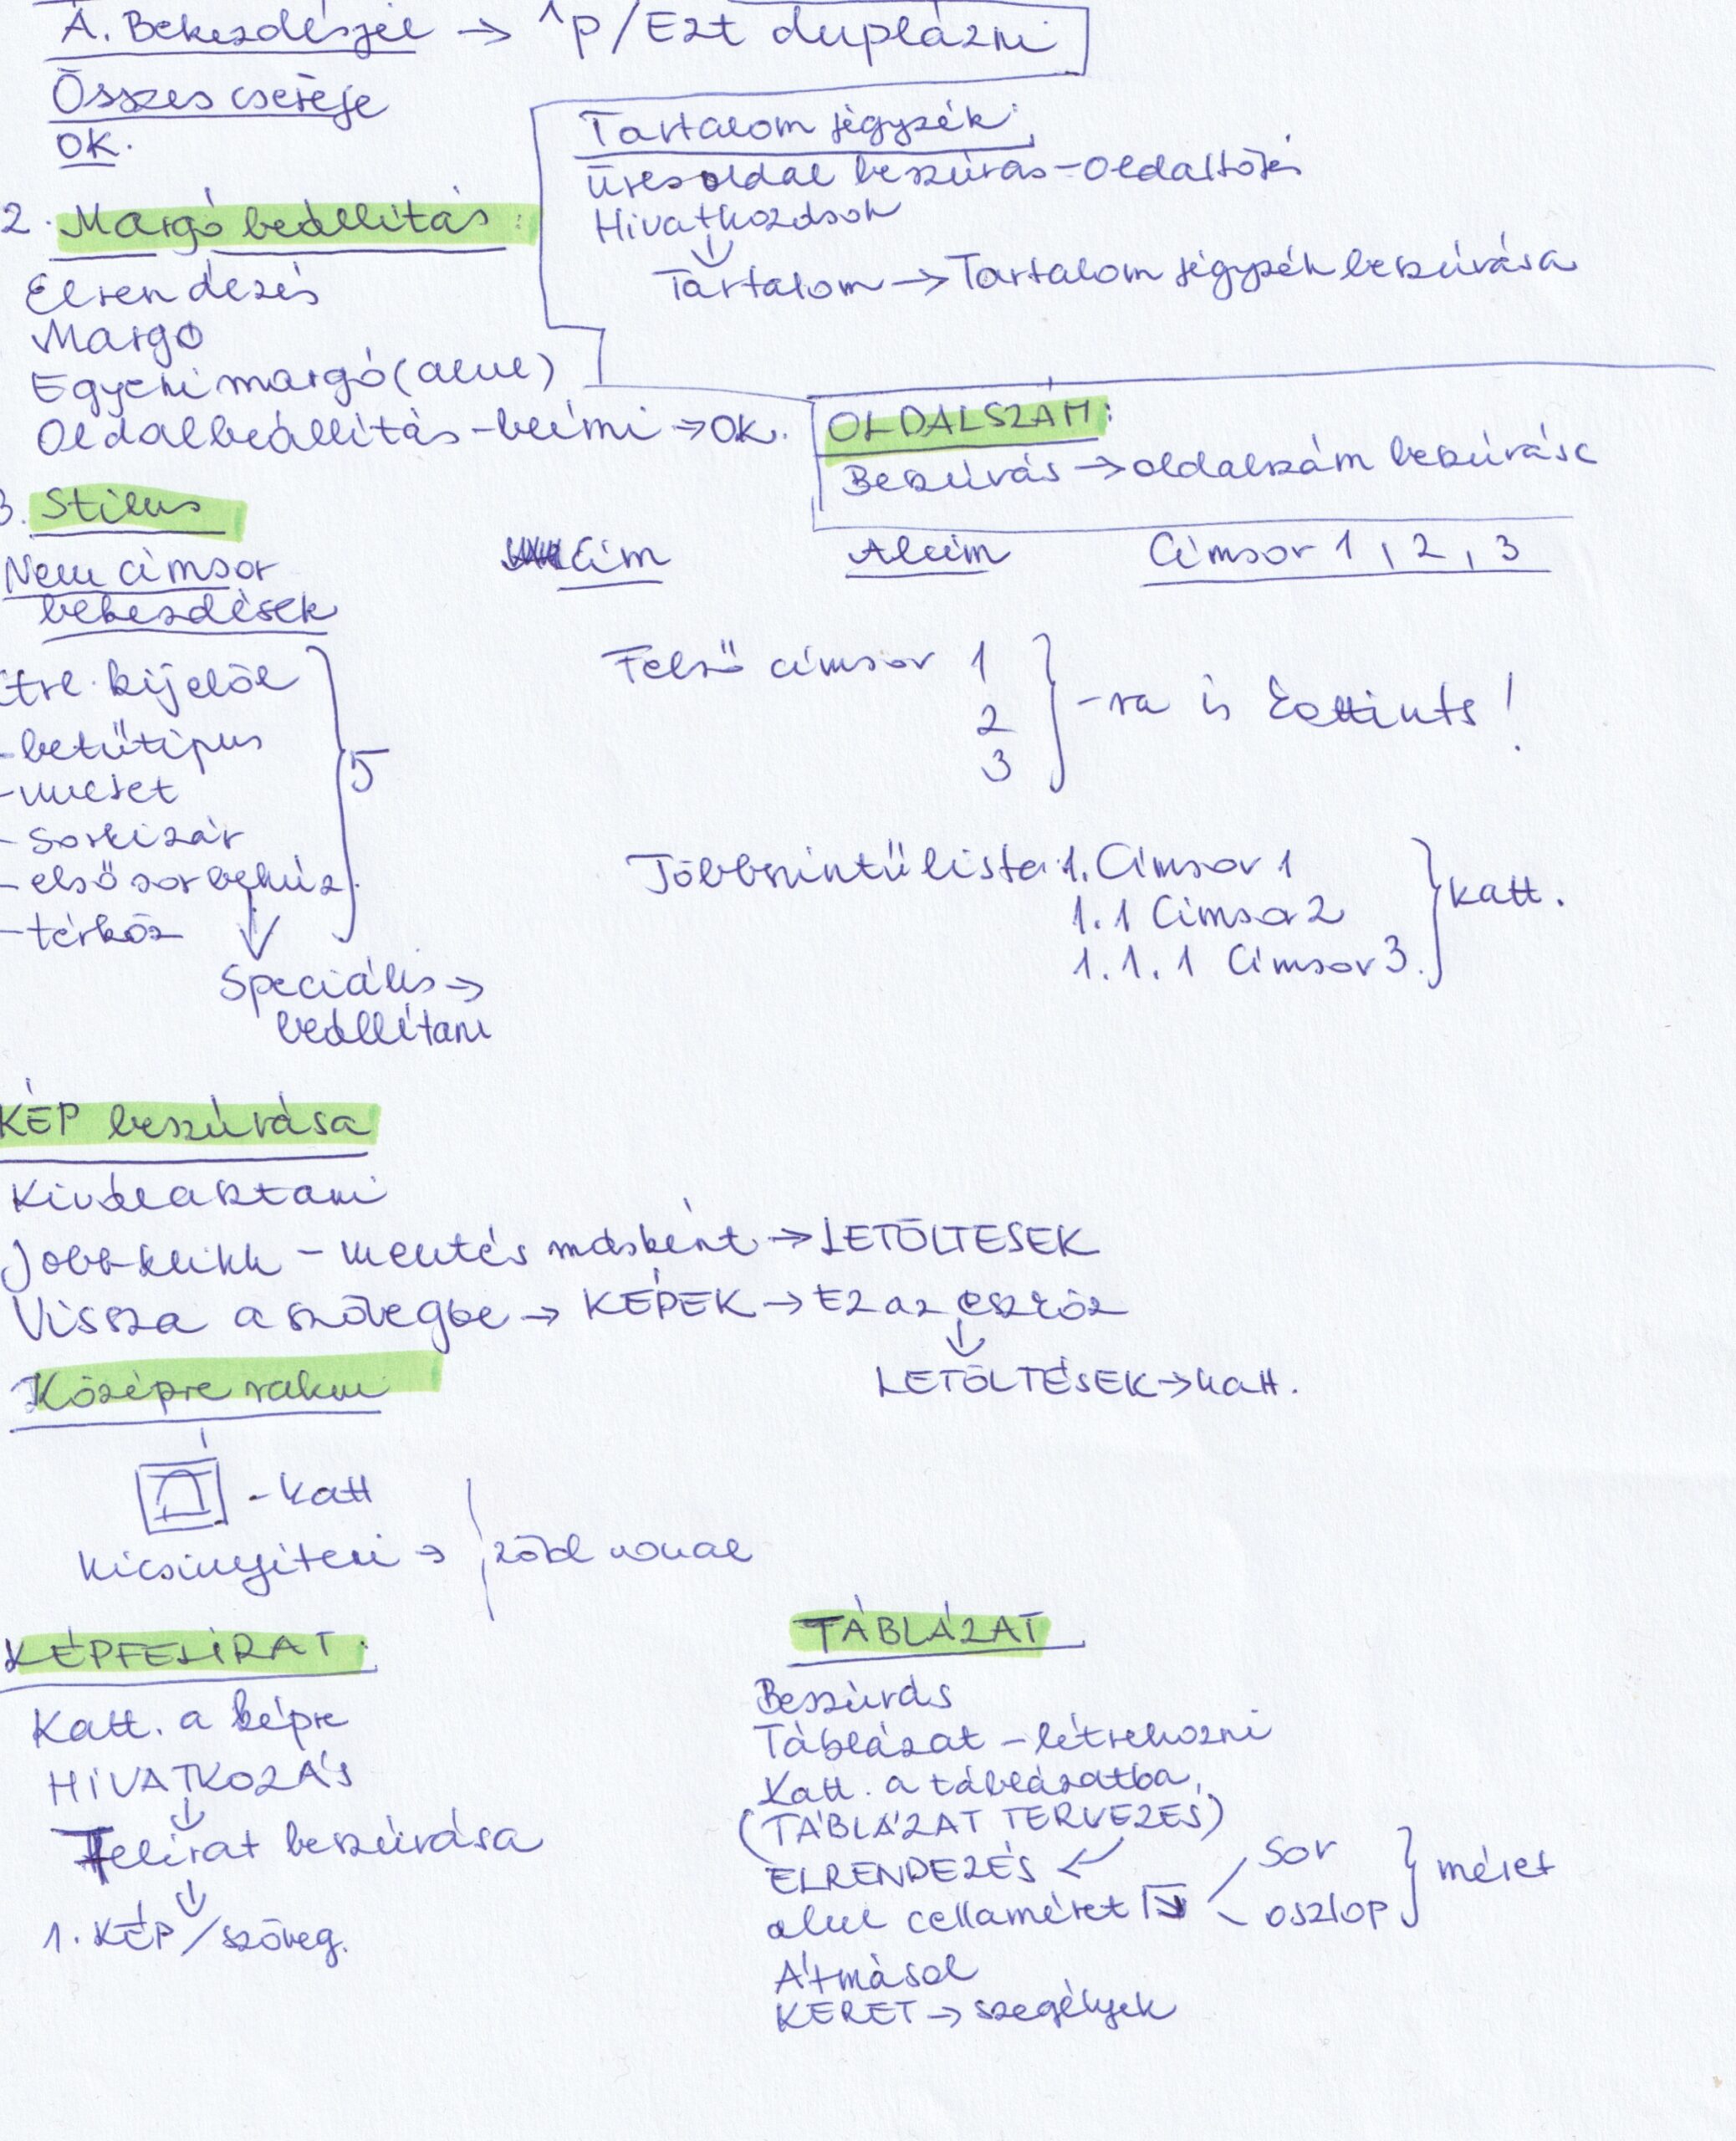 A. Bekezdésjel → ^p/Ezt duplázni
Összes cseréje
OK.
Tartalom jégyzék:
üres oldal beszúrás-oldaltörés
Hivatkozások
↓
Tartalom → Tartalom jégyzék beszúrása
2. Margó beállítás:
Elrendezés
Margó
Egyéni margó (alul)
Oldalbeállítás - beírni → OK.
OLDALSZÁM:
Beszúrás → oldalszám beszúrása
3. Stílus
Nem címsor
bekezdések
Cím
Alcím
Címsor 1, 2, 3
Ctrl. kijelöl
- betűtípus
- méret
- sorkizár
- első sor behúz
- térköz
5
↓
Speciális →
beállítani
Felső címsor 1
2
3
-ra is kattints!
Többszintű lista: 1. Címsor 1
1.1 Címsor 2
1.1.1 Címsor 3.
katt.
KÉP beszúrása
Kiválasztani
Jobb klikk - mentés másként → LETÖLTÉSEK
Vissza a szövegbe → KÉPEK → Ez az eszköz
↓
LETÖLTÉSEK → katt.
Középre rakni
- katt
Kicsinyíteni → zöld vonal
KÉPFELIRAT:
Katt. a képre
HIVATKOZÁS
↓
Felirat beszúrása
↓
1. KÉP/szöveg.
TÁBLÁZAT
Beszúrás
Táblázat - létrehozni
Katt. a táblázatba,
(TÁBLÁZAT TERVEZÉS)
ELRENDEZÉS ←
alul cellaméret
Sor
oszlop
méret
Átmásol
KERET → szegélyek